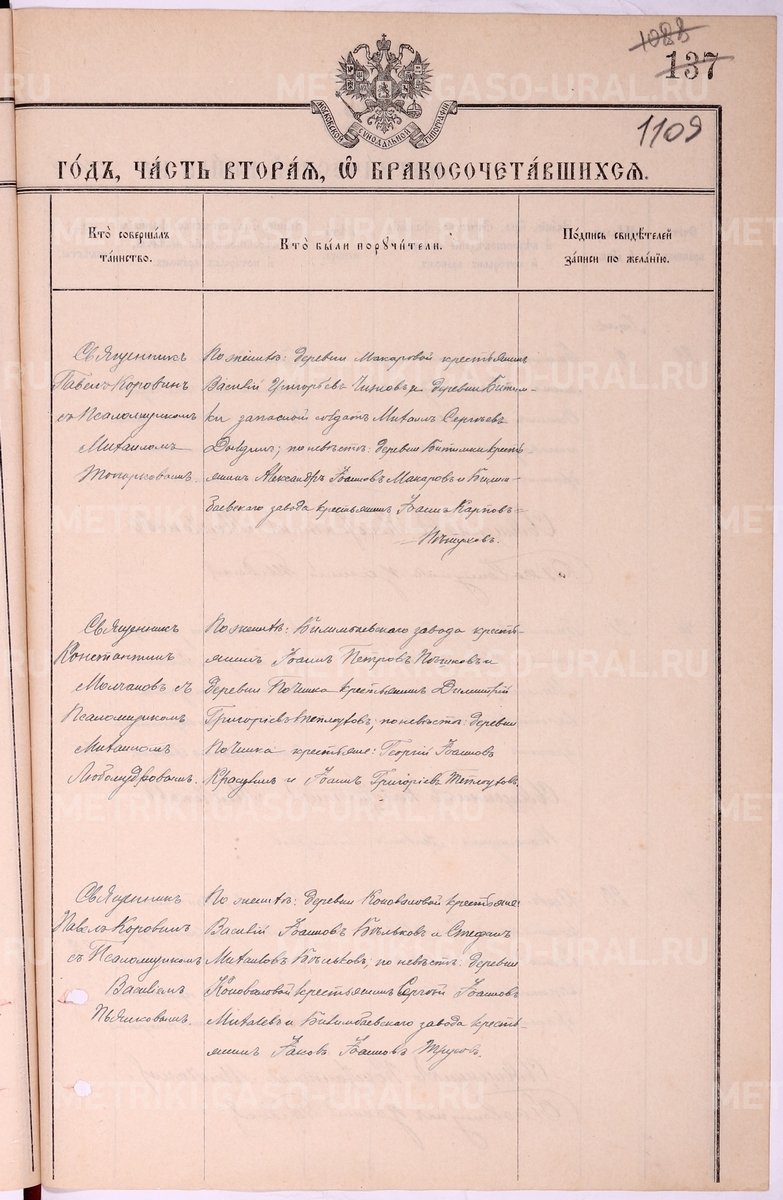 1088
137
1109
МОСКОВСКОЙ СѴНОДАЛЬНОЙ ТИПОГРАФІИ
ГО́ДЪ, ЧА́СТЬ ВТОРА́Ѧ, Ѡ҆ БРАКОСОЧЕТА́ВШИХСѦ.
Кто̀ соверша́лъ
та́инство.
Кто̀ бы́ли поручи́тели.
По́дпись свидѣ́телей
за́писи по жела́нїю.
Священникъ
Павелъ Коровинъ
съ Псаломщикомъ
Михаиломъ
Топорковымъ.
По женихѣ: деревни Макаровой крестьянинъ
Василій Григорьевъ и деревни Битим-
ки запасной солдатъ Михаилъ Сергѣевъ
по невѣстѣ: деревни Битимки кресть-
янинъ Александръ Іоанновъ Макаровъ и Билим-
баевскаго завода крестьянинъ Іоаннъ Карповъ
Пѣтуховъ.
Священникъ
Константинъ
Молчановъ съ
Псаломщикомъ
Михаиломъ
Любомудровымъ.
По женихѣ: Билимбаевскаго завода кресть-
янинъ Іоаннъ Петровъ и
деревни Починка крестьянинъ Димитрій
Григоріевъ Теплоуховъ; по невѣстѣ: деревни
Починка крестьяне: Георгій Іоанновъ
и Іоаннъ Григоріевъ Теплоуховъ.
Священникъ
Павелъ Коровинъ
съ Псаломщикомъ
Василіемъ
Пьянковымъ.
По женихѣ: деревни Коноваловой крестьяне
Василій Іоанновъ Бѣльковъ и Стефанъ
Михаиловъ Бѣльковъ; по невѣстѣ: деревни
Коноваловой крестьянинъ Сергій Іоанновъ
Михалевъ и Билимбаевскаго завода кресть-
янинъ Іаковъ Іоанновъ Трусовъ.
METRIKI.GASO-URAL.RU